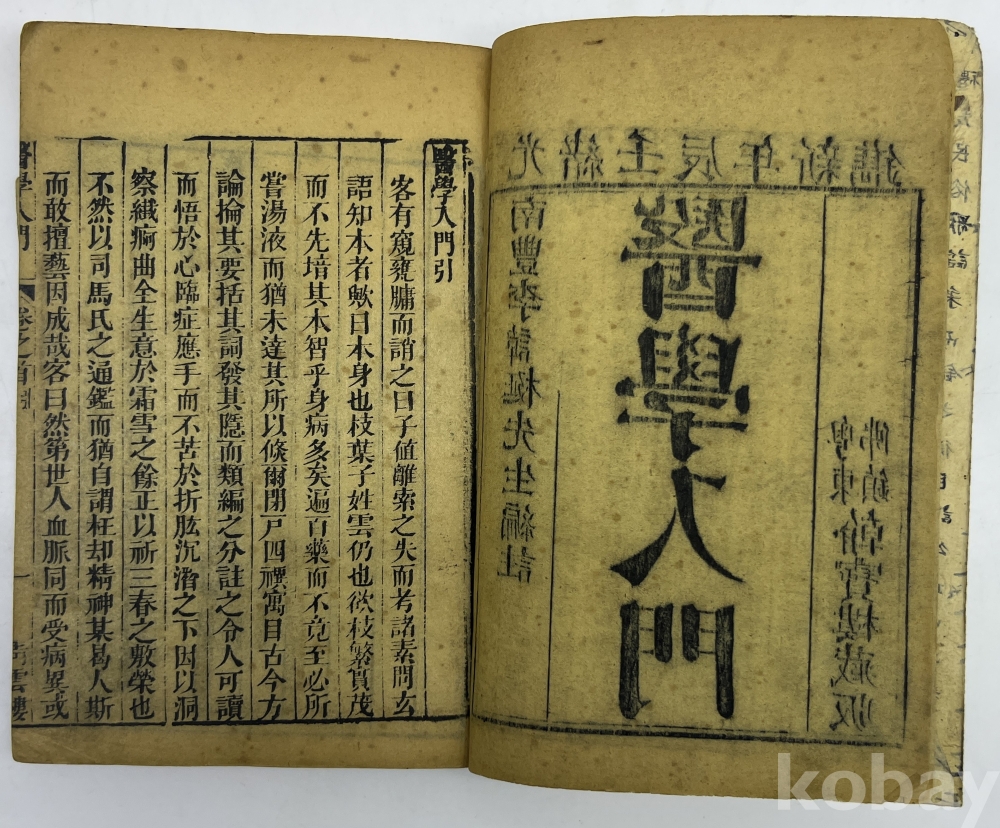 光緒壬辰年新鐫
南豐李諱梴先生編註
醫學入門
粵東
佛鎮翰寶樓藏版
醫學入門引
客有窺甕牖而誚之曰子值離索之失而考諸素問玄
語知本者歟曰本身也枝葉子姓雲仍也欲枝繁實茂
而不先培其本智乎身病多矣遍百藥而不竟至必所
嘗湯液而猶未達其所以倐爾閉戸四禩寓目古今方
論掄其要括其詞發其隱而類編之分註之令人可讀
而悟於心臨症應手而不苦於折肱沉潛之下因以洞
察纎痾曲全生意於霜雪之餘正以祈三春之敷榮也
不然以司馬氏之通鑑而猶自謂枉却精神某曷人斯
而敢擅藝因成哉客曰然第世人血脈同而受病異或
醫學入門 卷之首 引 一 雲樓
kobay